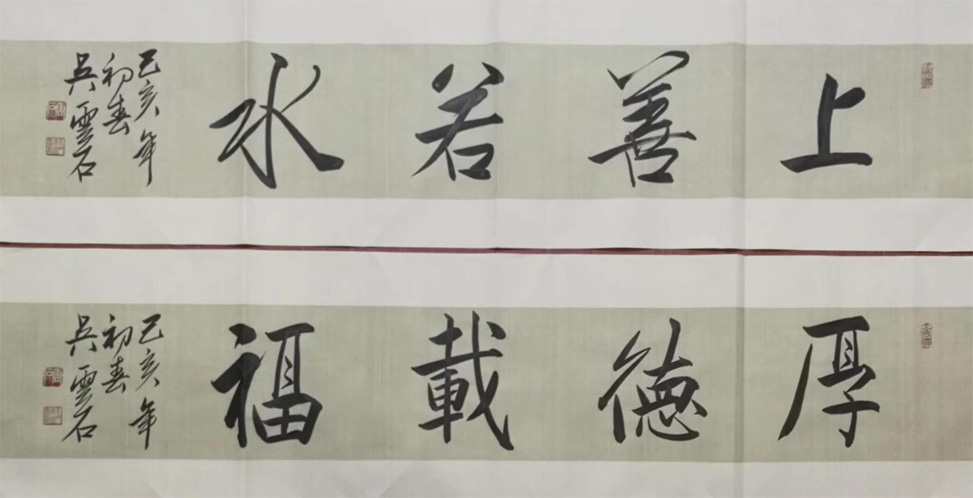 上善若水
己亥年
初春
吳雲石
厚德載福
己亥年
初春
吳雲石